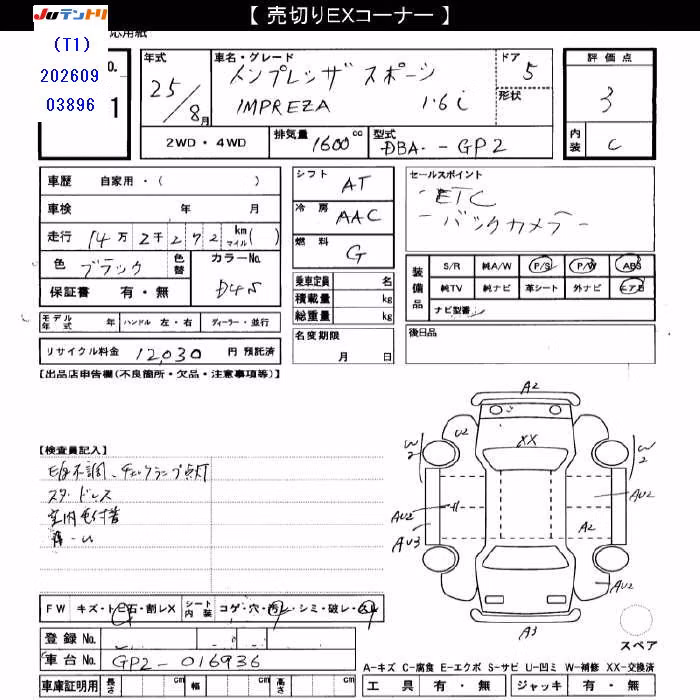 【 売切りEXコーナー 】
JUテントリ
応用紙
(T1)
202609
03896
o.
1
年式
25/8月
車名・グレード
インプレッサ スポーツ
IMPREZA 1.6i
ドア
5
形状
評価点
3
内装
C
2WD・4WD
排気量 1600 cc
型式 DBA-GP2
車歴 自家用・( )
車検 年 月
走行 14万2千272 km マイル( )
色 ブラック 色替
カラーNo. D4S
保証書 有・無
モデル年式 年 ハンドル 左・右 ディーラー・並行
リサイクル料金 12,030 円 預託済
シフト AT
冷房 AAC
燃料 G
乗車定員 名
積載量 kg
総重量 kg
名変期限
月 日
セールスポイント
・ETC
・バックカメラー
装備品
S/R 純A/W P/S P/W ABS
純TV 純ナビ 革シート 外ナビ エアB
ナビ型番
後日品
【出品店申告欄(不良箇所・欠品・注意事項等)】
【検査員記入】
チェックランプ点灯
スタッドレス
室内色付着
FW キズ・ト・石・割レX シート内装 コゲ・穴・汚レ・シミ・破レ・スレ
登録 No.
車台 No. GP2-016936
車庫証明用 長さ cm 幅 cm 高さ cm
A2
U2
XX
W2
W2
AU2
AU3
AU2
A2
AU2
A3
スペア
A-キズ C-腐食 E-エクボ S-サビ U-凹ミ W-補修 XX-交換済
工具 有・無 ジャッキ 有・無